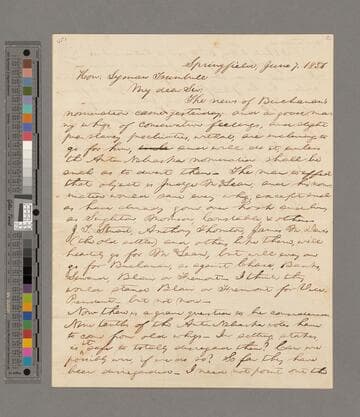 Springfield, June 7. 1856
Hon. Lyman Trumbull
My dear Sir:
The news of Buchanan's
nomination came yesterday; and a good many
whigs, of conservative feelings, and slight
pro-slavery proclivities, withal, are inclining to
go for him, and will do it, unless
the Anti-Nebraska nomination shall be
such as to divert them. The man to effect
that object is Judge McLean; and his nomi-
nation would save every whig, except such
as have already gone over hook and line,
as Singleton, Morrison, Constable, & others.
J. T. Stuart, Anthony Thornton, James M. Davis
(the old settler) and others like them, will
heartily go for McLean, but will every one
go for Buchanan, as against Chase, Banks,
Seward, Blair or Fremont. I think they
would stand Blair or Fremont for Vice-
President, but not more.
Now there is a grave question to be considered.
Nine tenths of the Anti-Nebraska votes have
to come from old whigs. In setting stakes,
is it safe to totally disregard them? Can we
possibly win, if we do so? So far they have
been disregarded. I need not point out the